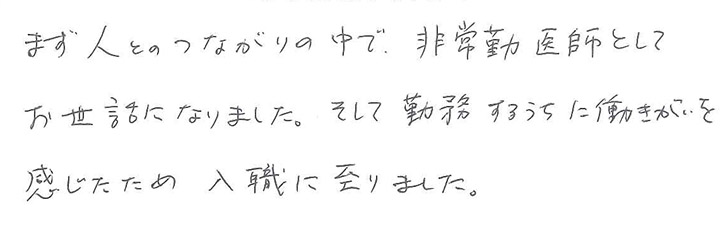 まず人とのつながりの中で、非常勤医師として
お世話になりました。そして勤務するうちに働きがいを
感じたため 入職に至りました。